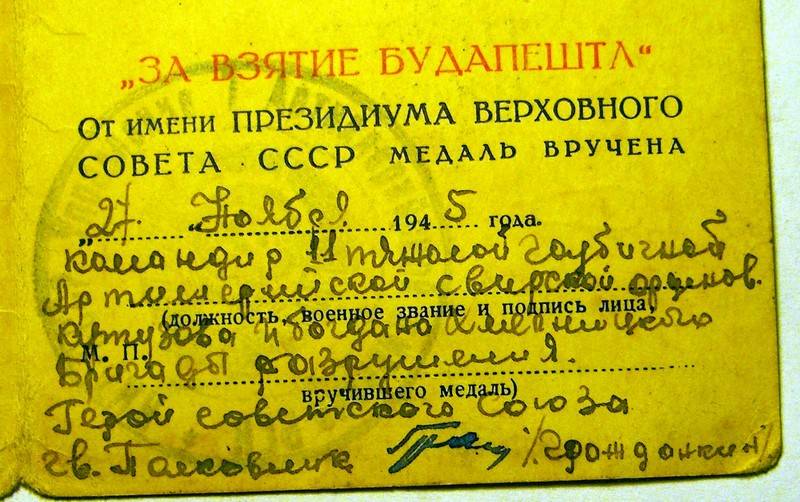 „ЗА ВЗЯТИЕ БУДАПЕШТА“
ОТ ИМЕНИ ПРЕЗИДИУМА ВЕРХОВНОГО
СОВЕТА СССР МЕДАЛЬ ВРУЧЕНА
„27 „Ноября 1945 года.
командир 11 тяжолой гаубичной
Артиллерийской свирской орденов.
(должность, военное звание и подпись лица,
Кутузова и Богдана Хмельницкого
М. П.
Бригады разрушения.
вручившего медаль)
Герой советского Союза
гв. Полковник /Гражданкин/